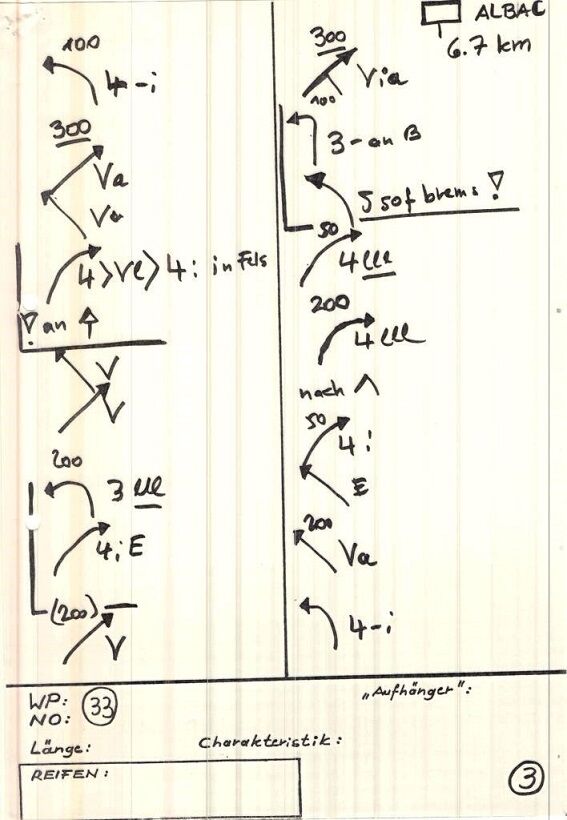 100
4-i
300
Va
Va
4>Vll>4i in Fels
! an
V
V
200
3 lll
4iE
(200)
V
ALBAC
6.7 km
300
Via
100
3-an B
5 sof brems !
50
4 lll
200
4 lll
nach
50
4i
E
200
Va
4-i
WP:
NO:
33
Länge:
Charakteristik:
„Aufhänger":
REIFEN:
3